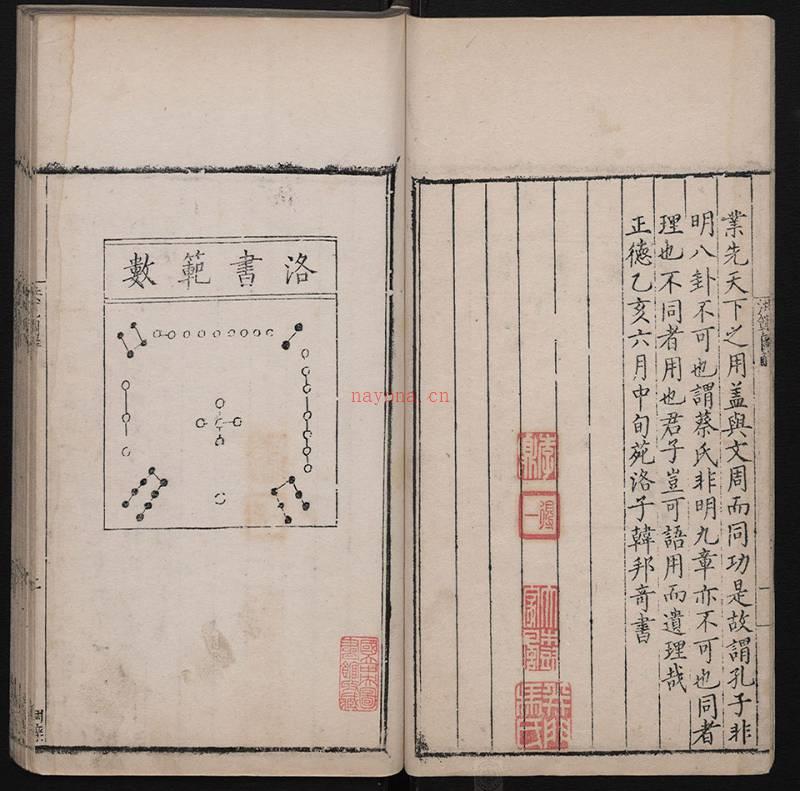 業先天下之用盖與文周而同功是故謂孔子非
明八卦不可也謂蔡氏非明九章亦不可也同者
理也不同者用也君子豈可語用而遺理哉
正德乙亥六月中旬苑洛子韓邦竒書
洛書範數
nayona.cn